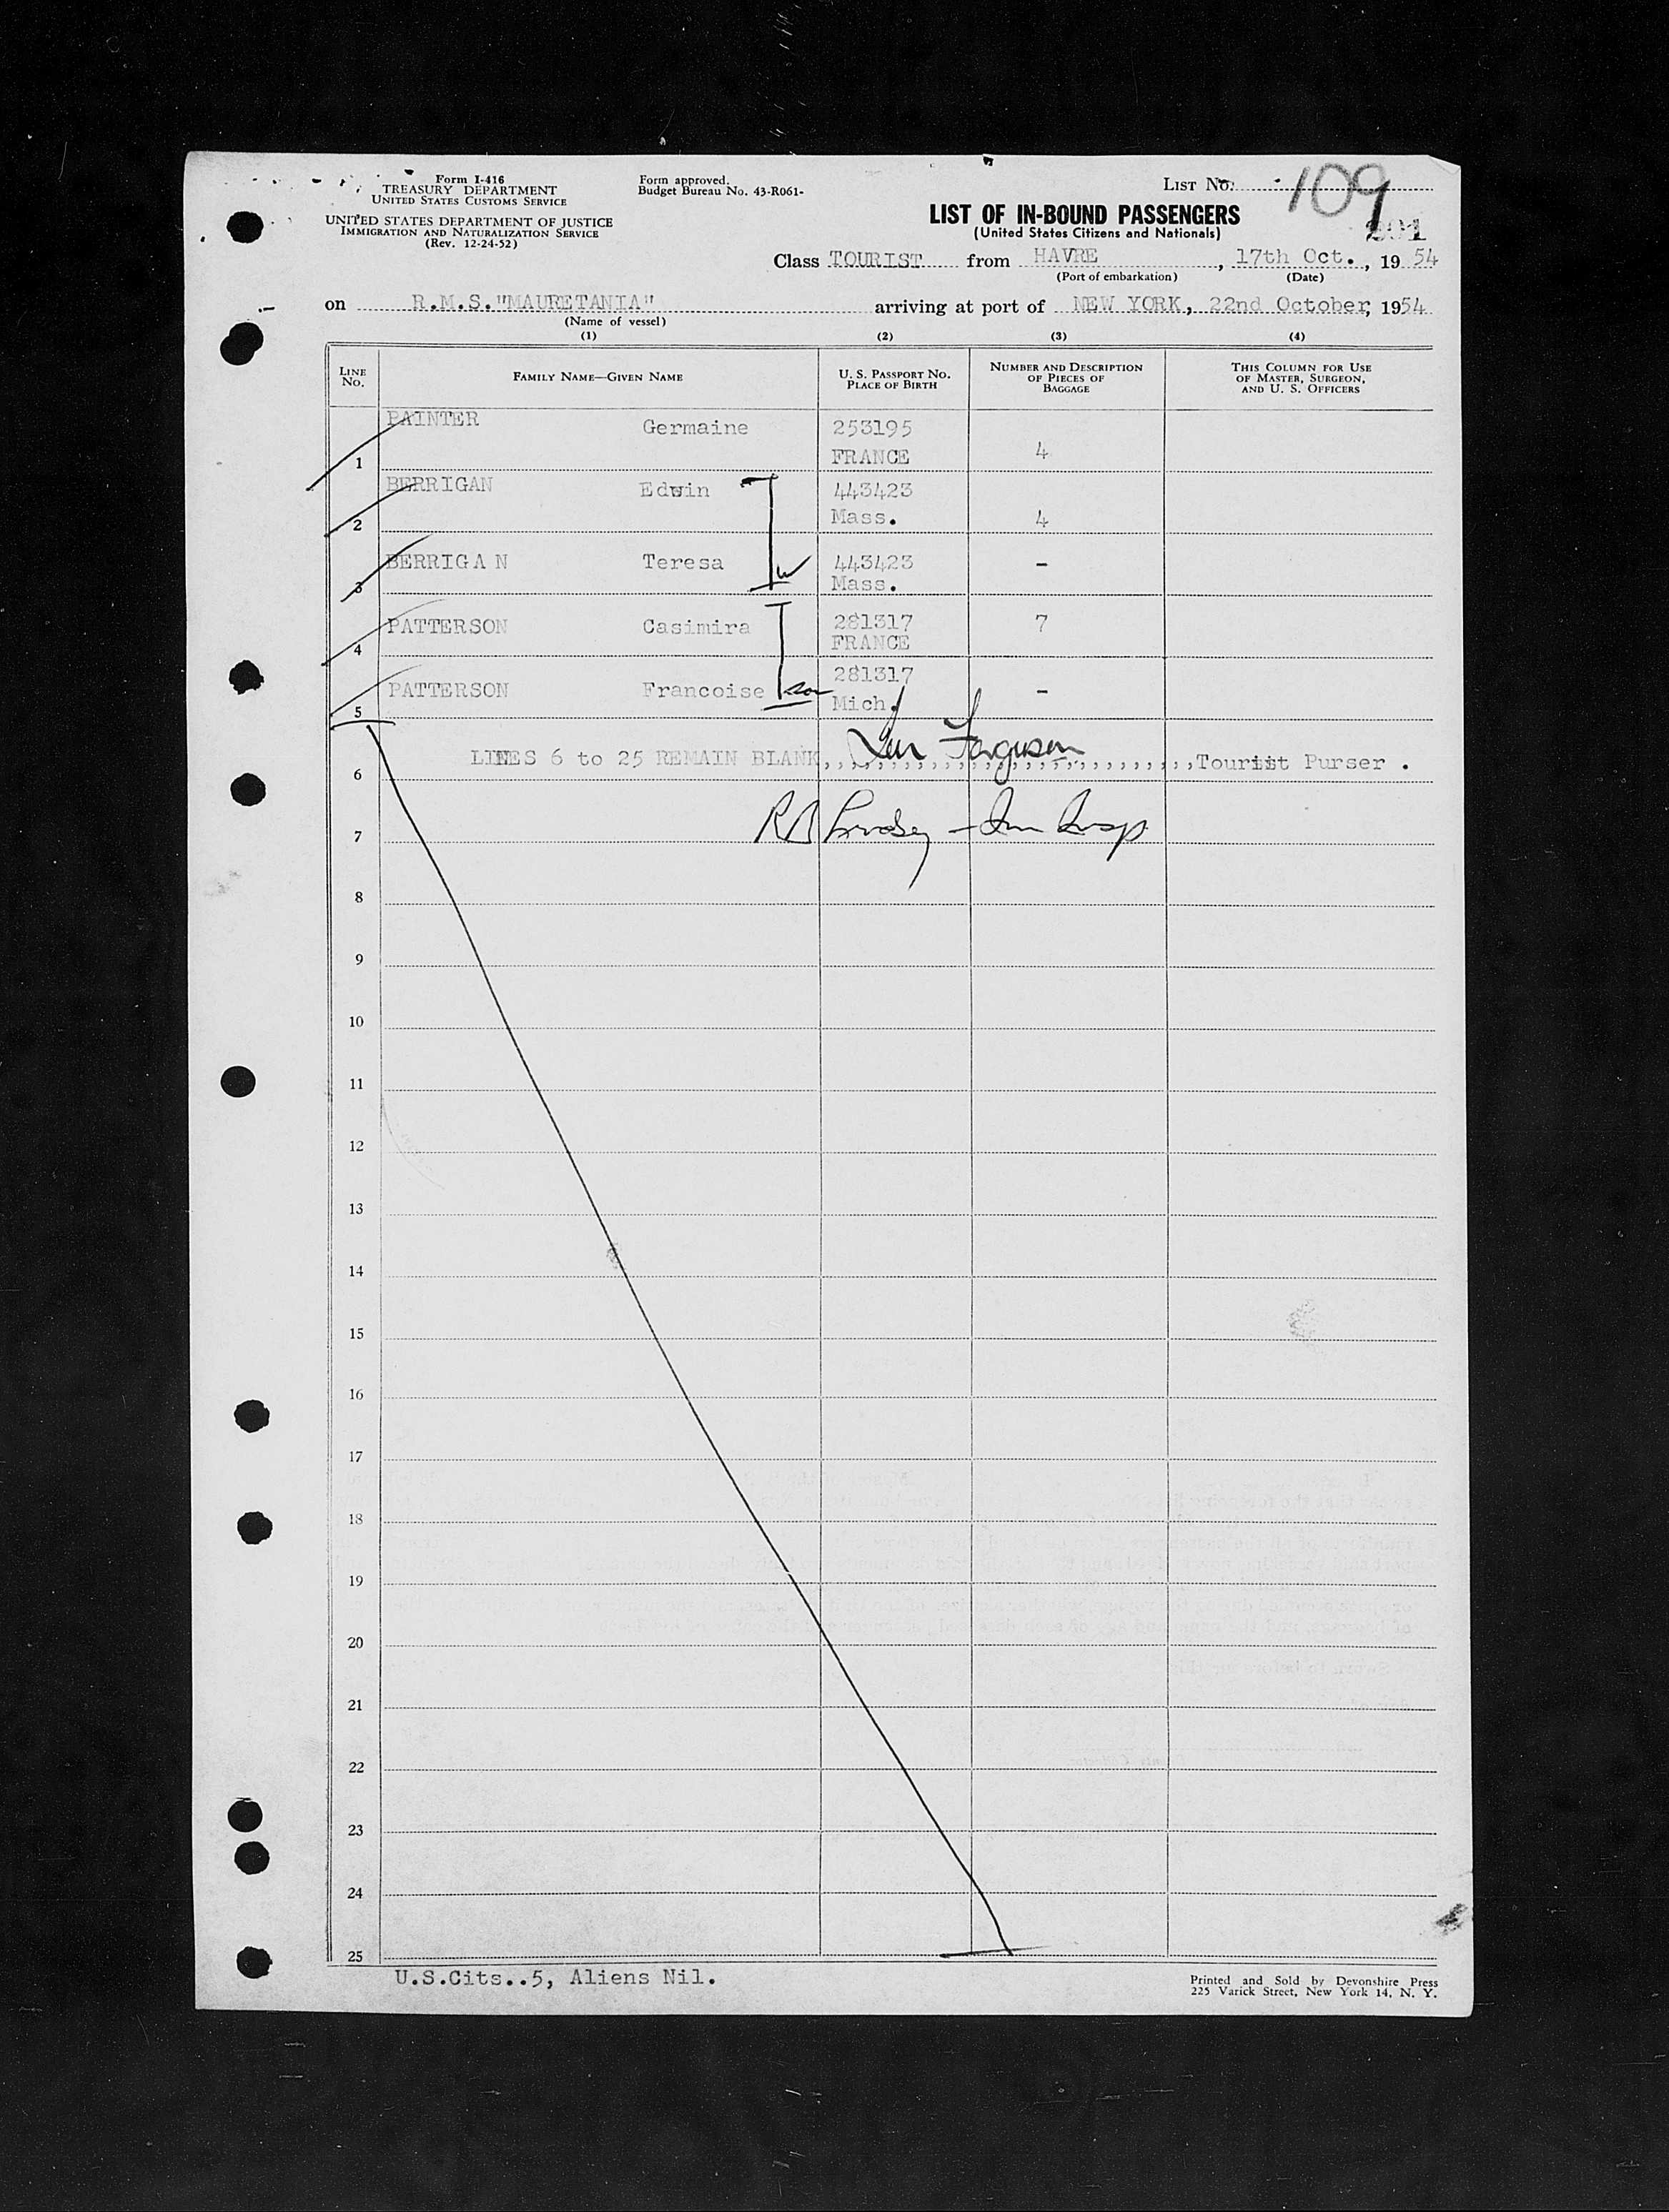 Form I-416
TREASURY DEPARTMENT
UNITED STATES CUSTOMS SERVICE
UNITED STATES DEPARTMENT OF JUSTICE
IMMIGRATION AND NATURALIZATION SERVICE
(Rev. 12-24-52)
Form approved.
Budget Bureau No. 43-R061-
LIST No. 109
LIST OF IN-BOUND PASSENGERS
(United States Citizens and Nationals)
Class TOURIST from HAVRE, 17th Oct., 1954
(Port of embarkation) (Date)
on R.M.S."MAURETANIA" arriving at port of NEW YORK, 22nd October, 1954
(Name of vessel)
(1) (2) (3) (4)
LINE No. FAMILY NAME—GIVEN NAME U. S. PASSPORT No. PLACE OF BIRTH NUMBER AND DESCRIPTION OF PIECES OF BAGGAGE THIS COLUMN FOR USE OF MASTER, SURGEON, AND U. S. OFFICERS
1 PAINTER Germaine 253195 FRANCE 4
2 BERRIGAN Edwin 443423 Mass. 4
3 BERRIGAN Teresa w 443423 Mass. -
4 PATTERSON Casimira 281317 FRANCE 7
5 PATTERSON Francoise 281317 Mich. -
6 LINES 6 to 25 REMAIN BLANK,,,,,,,,,,,,,,,,,,,,,,,,,,Tourist Purser .
Ferguson
7
8
9
10
11
12
13
14
15
16
17
18
19
20
21
22
23
24
25
U.S.Cits..5, Aliens Nil.
Printed and Sold by Devonshire Press
225 Varick Street, New York 14, N. Y.